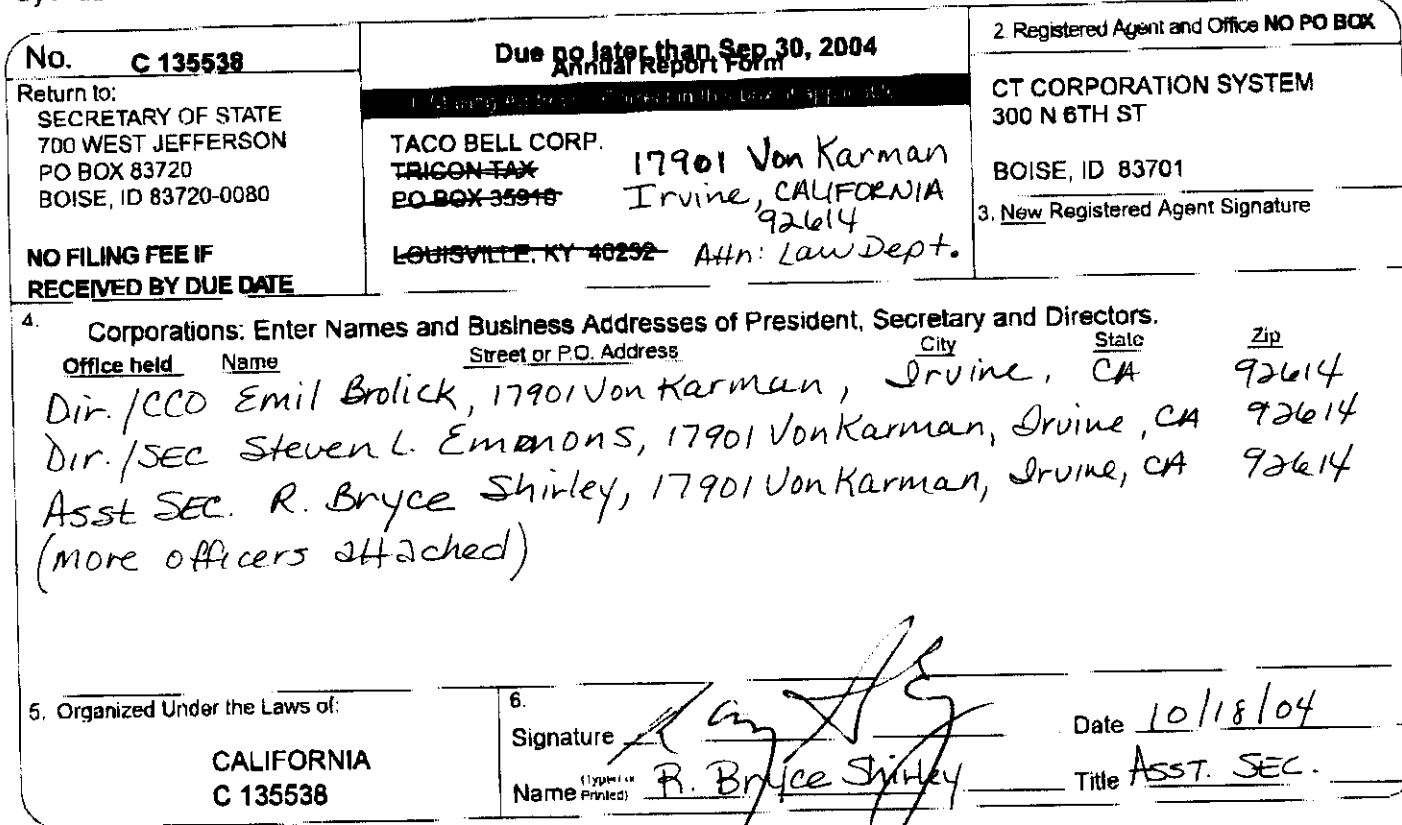 No. C 135538
Return to:
SECRETARY OF STATE
700 WEST JEFFERSON
PO BOX 83720
BOISE, ID 83720-0080
NO FILING FEE IF
RECEIVED BY DUE DATE
Due no later than Sep 30, 2004
Annual Report Form
TACO BELL CORP.
TRICON TAX
PO BOX 35910
LOUISVILLE, KY 40232
17901 Von Karman
Irvine, CALIFORNIA
92614
Attn: Law Dept.
2. Registered Agent and Office NO PO BOX
CT CORPORATION SYSTEM
300 N 6TH ST
BOISE, ID 83701
3. New Registered Agent Signature
4. Corporations: Enter Names and Business Addresses of President, Secretary and Directors.
Office held Name Street or P.O. Address City State Zip
Dir./CCO Emil Brolick, 17901 Von Karman, Irvine, CA 92614
Dir./SEC Steven L. Emmons, 17901 Von Karman, Irvine, CA 92614
Asst SEC. R. Bryce Shirley, 17901 Von Karman, Irvine, CA 92614
(more officers attached)
5. Organized Under the Laws of:
CALIFORNIA
C 135538
6.
Signature
Date 10/18/04
Name (Typed or Printed) R. Bryce Shirley
Title ASST. SEC.